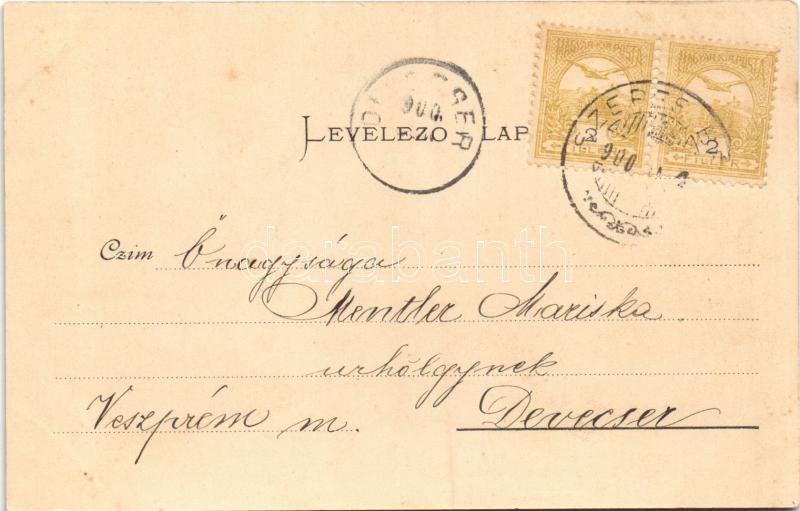 MAGYAR KIR. POSTA MAGYAR KIR. POSTA
2 2
FILLÉR FILLÉR
900
LEVELEZO LAP
900
Czim Őnagysága
darabanth.com
Mentler Mariska
urhölgynek
Veszprém m. Devecser